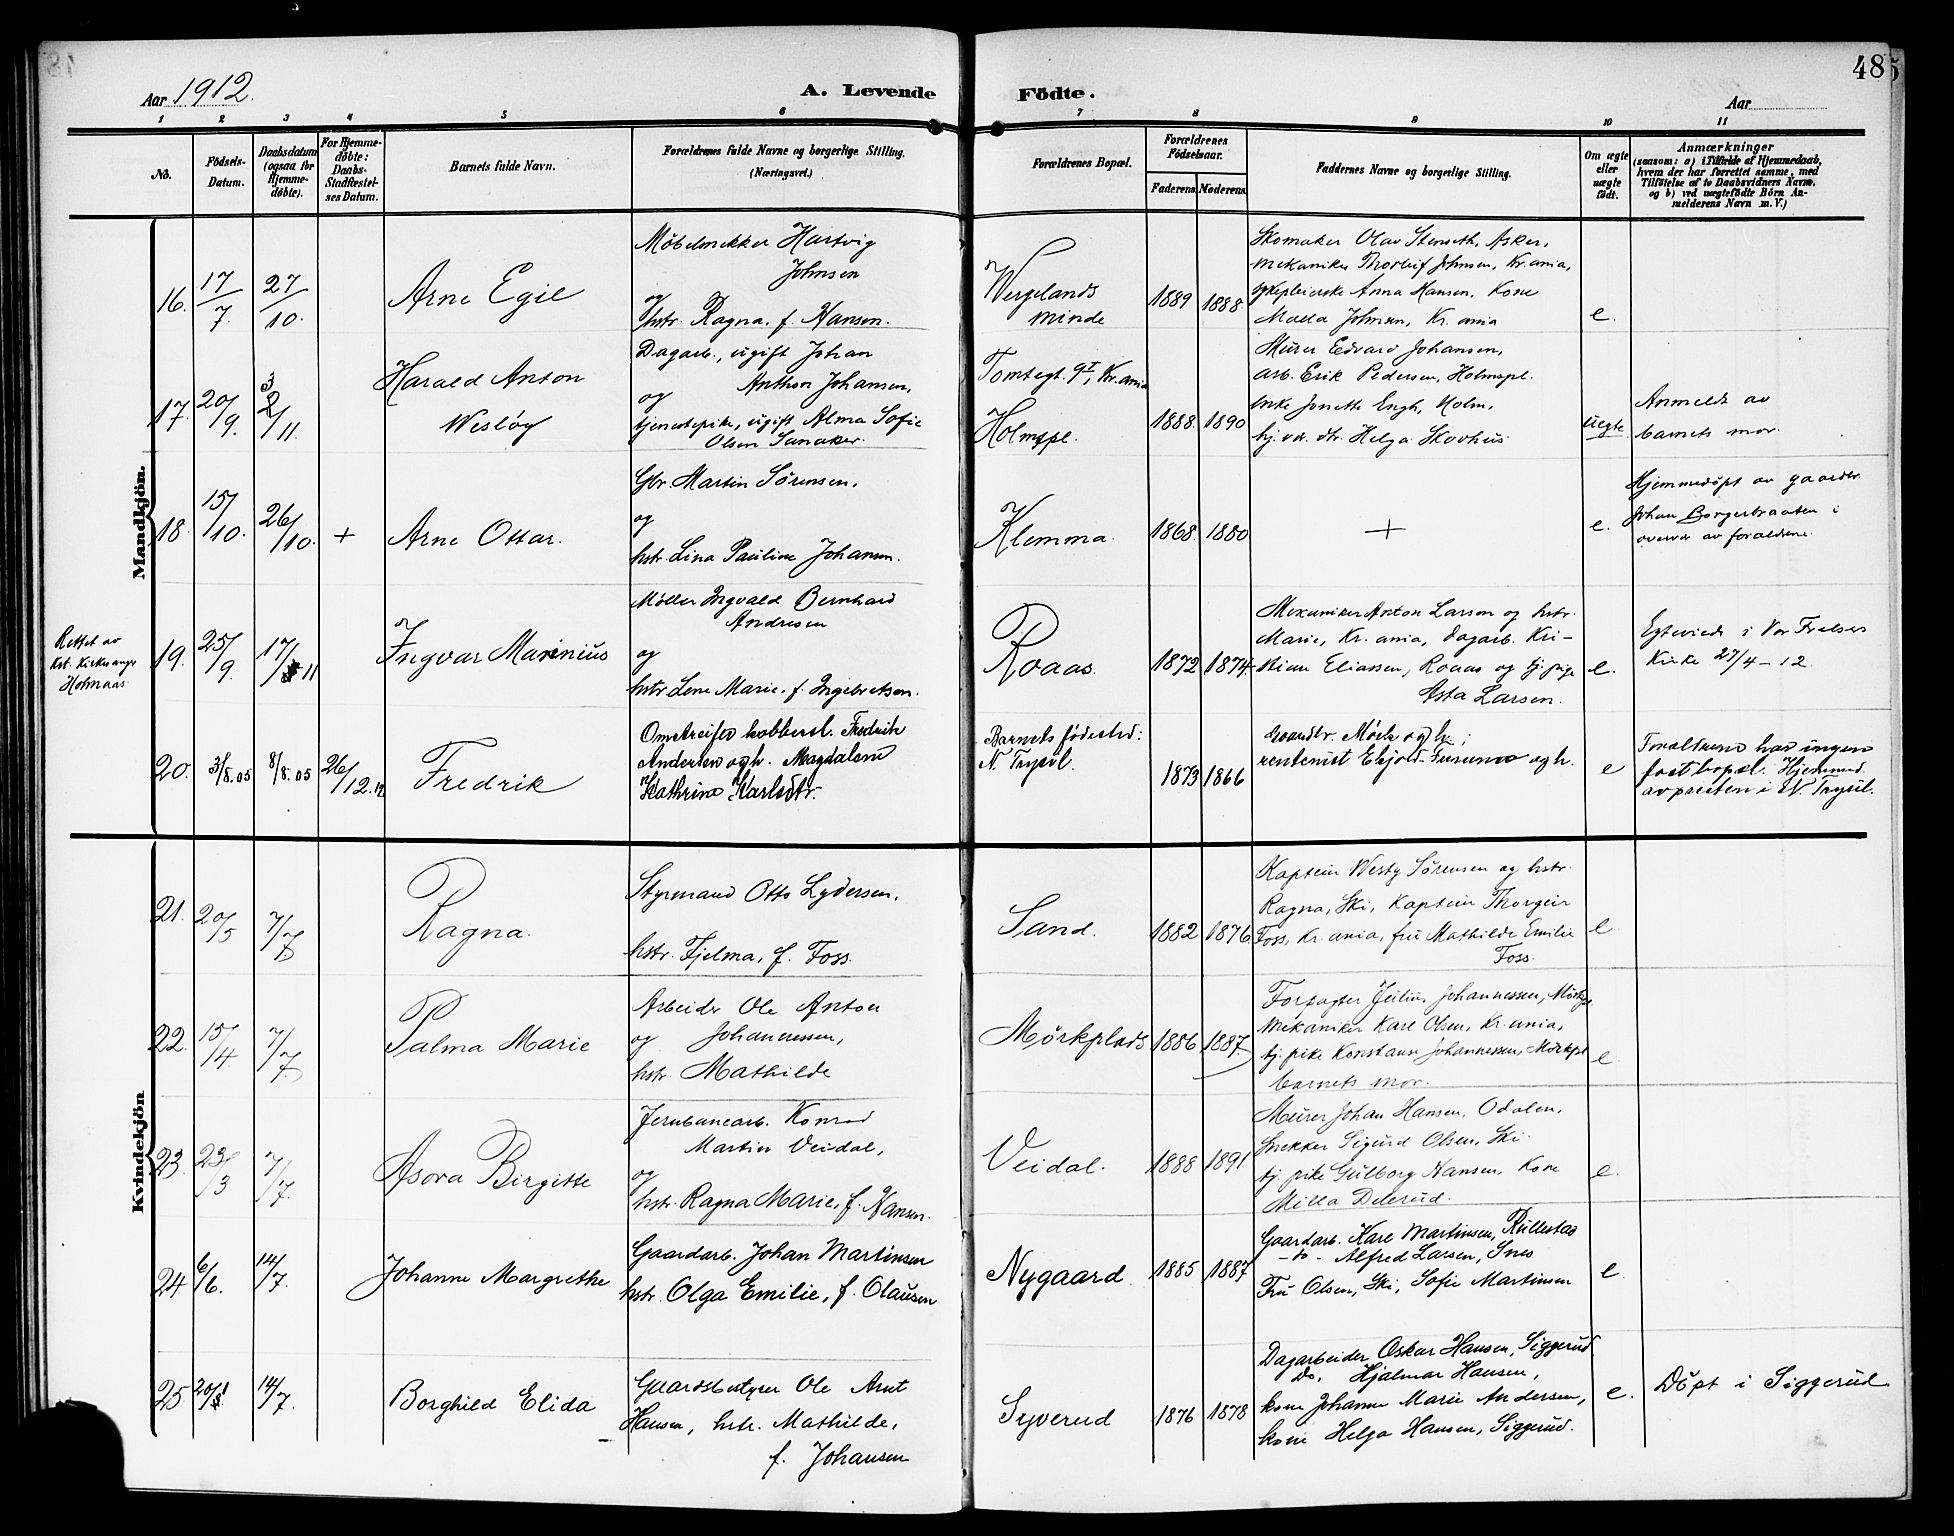 48
Aar 1912.
A. Levende
Födte.
Aar
1 2 3 4 5 6 7 8 9 10 11
No.
Födsels-
Datum.
Daabsdatum
(ogsaa for
Hjemme-
döbte).
For Hjemme-
döbte:
Daabs-
Stadfæstel-
ses Datum.
Barnets fulde Navn.
Forældrenes fulde Navne og borgerlige Stilling.
(Næringsvei.)
Forældrenes Bopæl.
Forældrenes
Födselsaar.
Faderens Moderens
Faddernes Navne og borgerlige Stilling.
Om ægte
eller
uægte
födt.
Anmærkninger
(saasom: a) i Tilfælde af Hjemmedaab,
hvem der har forrettet samme, med
Tilföielse af to Daabsvidners Navne,
og b) ved uægtefödte Börn An-
melderens Navn m. V.)
Mandkjön.
16. 17/7. 27/10.
Arne Egil
Møbelsnekker Hartvig
Johnsen
og
hstr. Ragna, f. Hansen.
Vergelands
minde
1889 1888
Skomaker Olav Stenseth, Asker,
mekaniker Thorleif Johnsen, Kr.ania,
sykepleierske Anna Hansen, Kone
Johnsen, Kr.ania
e.
17. 20/9. 3/11.
Harald Anton
Wesløy
Dagarb., ugift Johan
Anthon Johansen,
og
tjenestepike, ugift Alma Sofie
Olsen Sanaker.
Tomtegt. 9I, Kr.ania
Holmspl.
1888. 1890
Murer Edvard Johansen,
arb. Erik Pedersen, Holmspl.
enke Jonette Engh, Holm,
hj.vær. dtr. Helga Skovhus
uegte
Anmeldt av
barnets mor.
18. 15/10. 26/10. +
Arne Ottar.
Gbr. Martin Sørensen,
og
hstr. Lina Pauline Johansen.
Klemma.
1868. 1880
+
e.
Hjemmedøpt av gaardbr.
Johan Borgerbraaten i
overvær av forældrene.
Rettet av
Kst. Kirkesanger
Holmaas
19. 25/9. 17/11
Ingvar Marinius
Møller Ingvald Bernhard
Andresen
og
hstr. Lene Marie, f. Ingebretsen.
Roaas.
1872 1874
Mekaniker Anton Larsen og hstr.
Marie, Kr.ania, dagarb. Kri-
stian Eliassen, Roaas og tj.pige
Asta Larsen.
e.
Egteviede i Vor Frelsers
Kirke 27/4-12.
20. 3/8.05 8/8.05 26/12.12
Fredrik
Omstreifer kobbersl. Fredrik
Andersen og h. Magdalene
Kathrine Karlsdtr.
Barnets fødested:
N. Trysil.
1873 1866
Gaardbr. Mörk og h.;
rentenist Ekjold-Furumo og h.
e
Forældrene har ingen
fast bopæl. Hjemmed.
av presten i N. Trysil.
Kvindekjön
21. 20/5 7/7.
Ragna.
Styrmand Otto Lydersen,
hstr. Fjelma, f. Foss.
Sand.
1882 1876
Kaptein Westy Sørensen og hstr.
Ragna, Ski, Kaptein Thorgeir
Foss, Kr.ania, fru Mathilde Emilie
Foss.
e.
22. 15/4. 7/7.
Palma Marie
Arbeider Ole Anton
og Johannessen,
hstr. Mathilde
Mörkplads
1886 1887
Forpagter Julius Johannessen, Mörkpl.
Mekaniker Karl Olsen, Kr.ania,
tj.pike Konstanse Johannessen, Mörkpl
barnets mor.
e
23. 23/3 7/7.
Asora Birgitte
Jernbanearb. Konrad
Martin Veidal,
og
hstr. Ragna Marie, f. Hansen.
Veidal.
1888 1891
Murer Johan Hansen, Odalen,
Snekker Sigurd Olsen, Ski.
tj.pike Gulborg Hansen, Kone
Milla Delerud.
e.
24 6/6. 14/7.
Johanne Margrethe
Gaardarb. Johan Martinsen
hstr. Olga Emilie, f. Olausen
Nygaard.
1885 1887
Gaardarb. Karl Martinsen, Rullestad
-do- Alfred Larsen,
Fru Olsen, Ski, Sofie Martinsen
e.
25 20/1 14/7.
Borghild Elida
Gaardsbestyrer Ole Arnt
Hansen, hstr. Mathilde,
f. Johansen
Syverud
1876 1878
Dagarbeider Oskar Hansen, Siggerud
Do. Hjalmar Hansen,
kone Johanne Marie Andersen,
kone Helga Hansen, Siggerud.
e.
Döpt i Siggerud